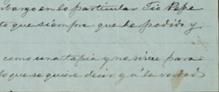 cargo en lo particular Tio Pepe
to que siempre que he podido y
como una tapia y no sirve para
lo que se quiere decir y a la verdad